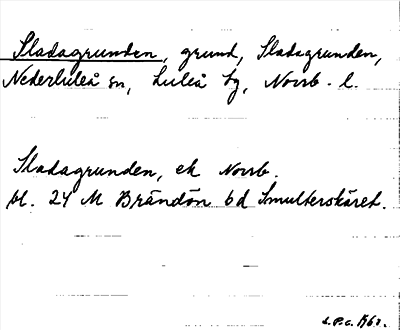 Sladagrunden, grund, Sladagrunden,
Nederluleå sn, Luleå tg, Norrb. l.
Sladagrunden, ek Norrb.
bl. 24 M Brändön bd Smulterskäret.